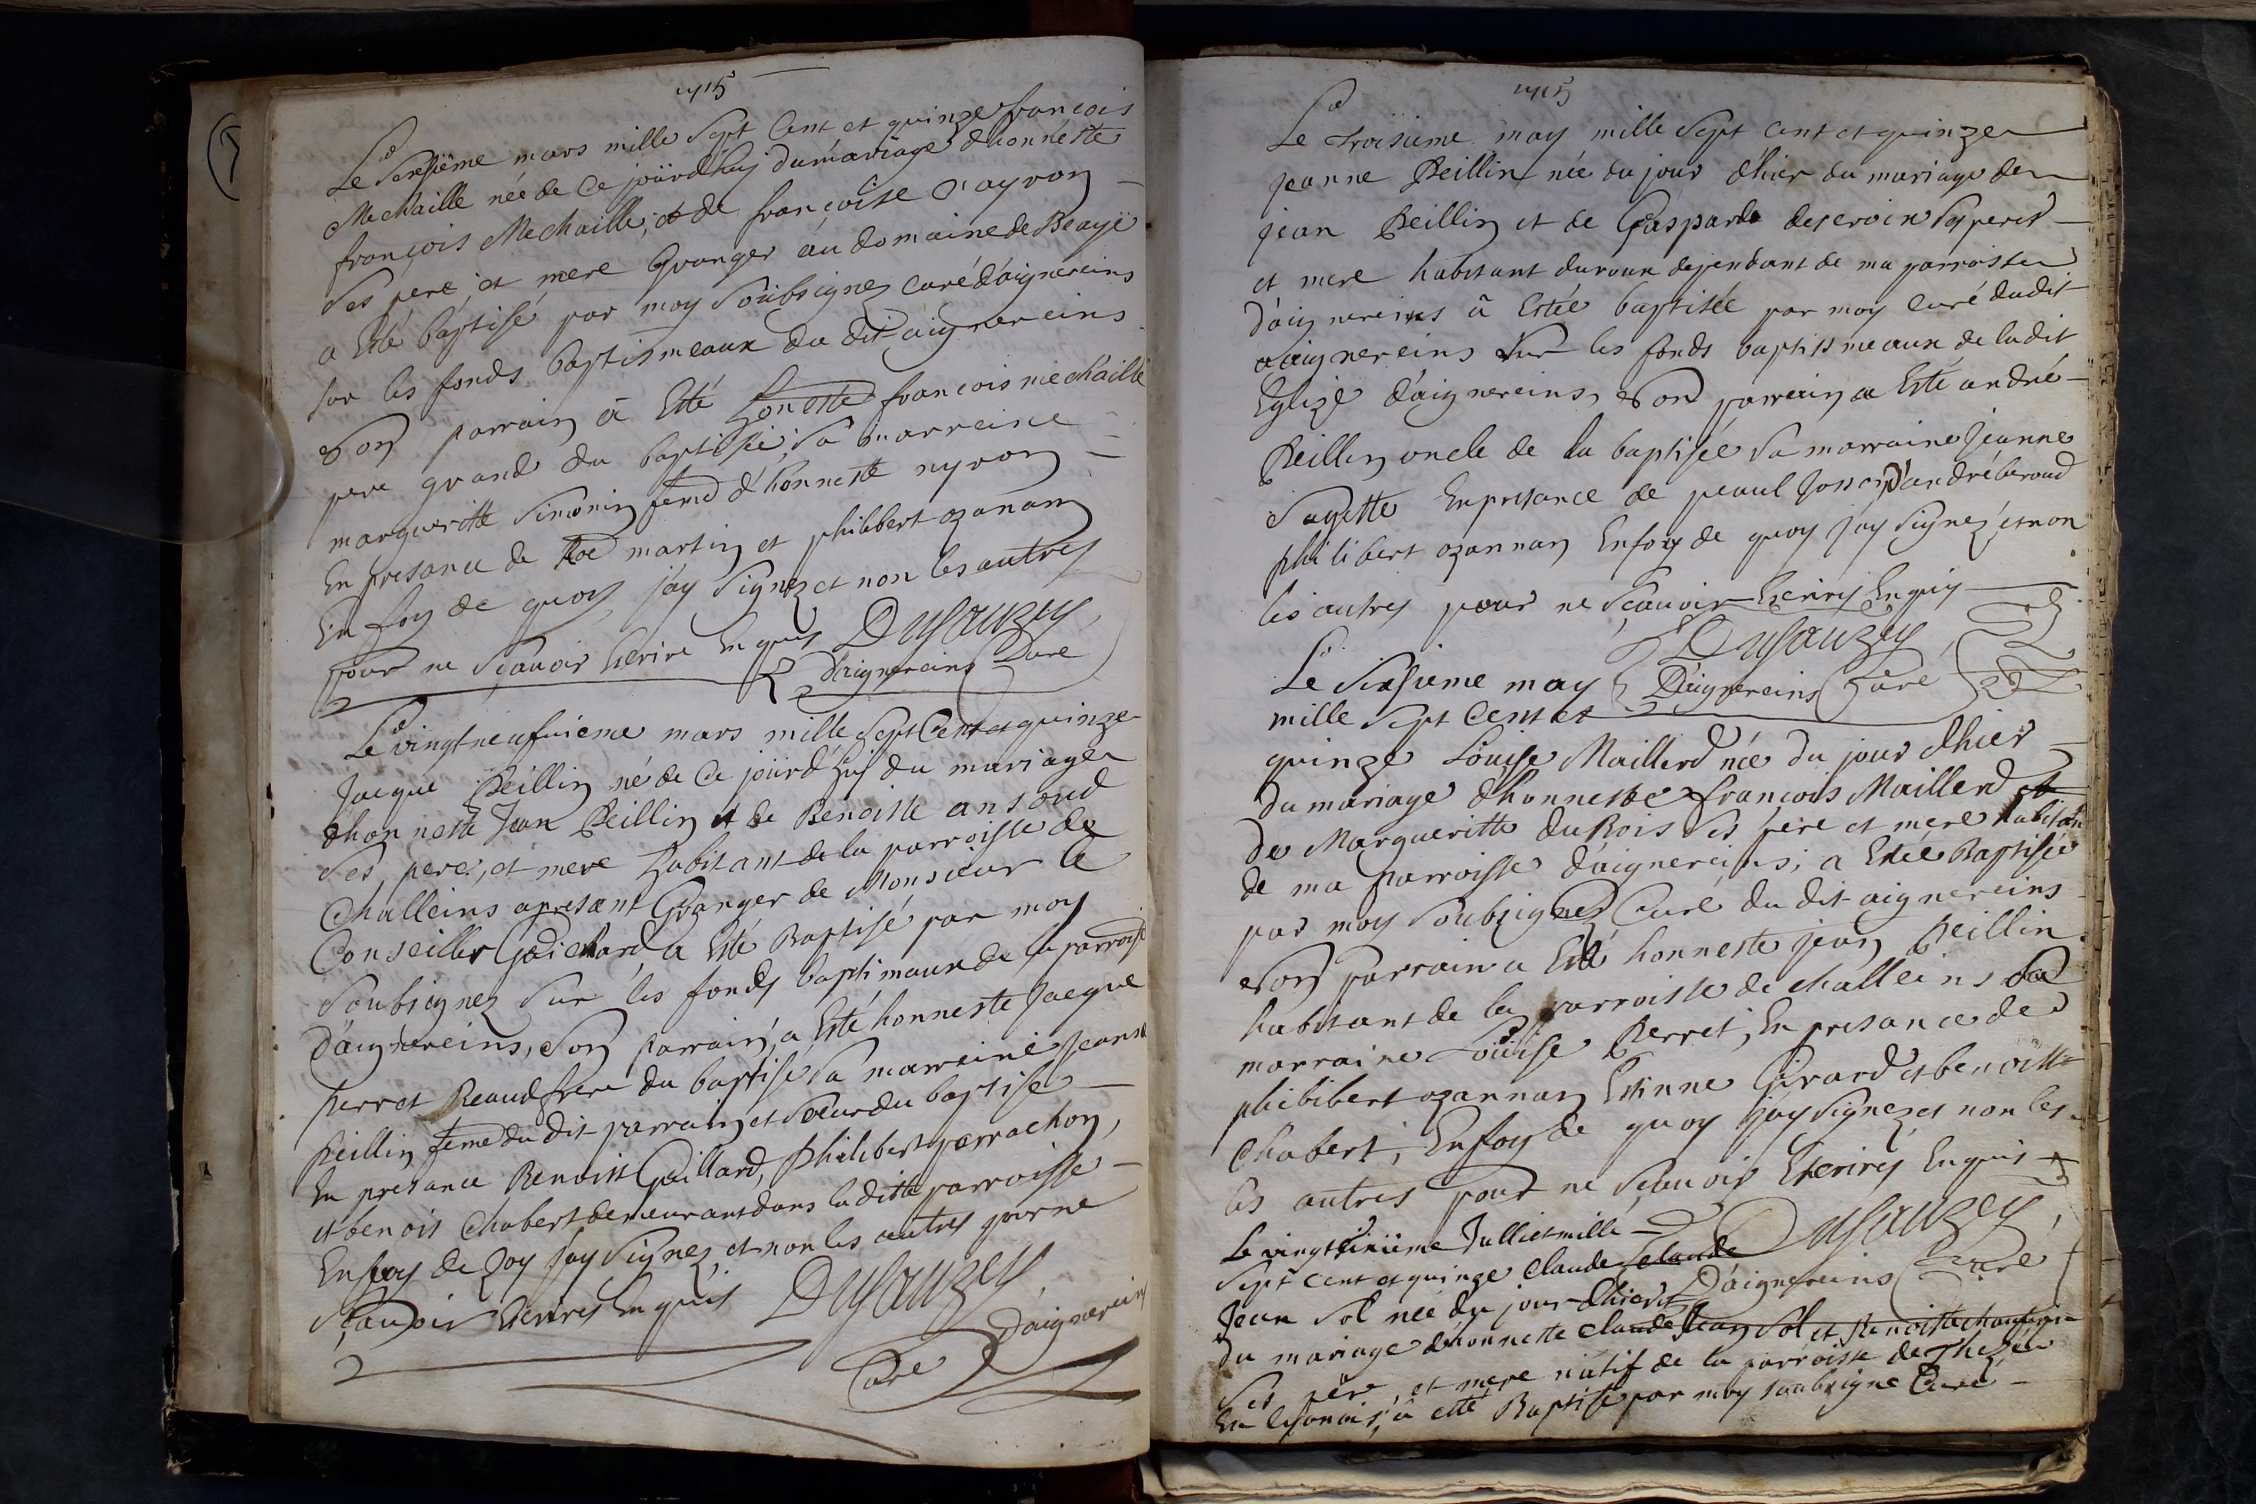 1715
Le Sesieme mars mille Sept Cent et quinze françois
Mechaille née de Ce joürdhuy du mariage d'honneste
françois Mechaille, et de françoise rayron
Ses pere et mere Granger au domaine de Beaye
a Esté baptisé par moy Soübsignez curé d'aignereins
sur les fonds baptismeaux du dit aignereins
Son parrain a Esté honeste françois mechaille
pere grand du baptisé, Sa marreine
margueritte Simonin feme d'honneste nyron
En presance de martin et philibert ozanam
En foy de quoy j'ay Signez et non les autres
pour ne Sçauoir Escrire Enquis Dusauzey
D'aignereins Curé
Le vingtneufuieme mars mille Sept Cent et quinze
Jacque Peillin né de Ce joürd'huy du mariage
d'honneste Jean Peillin et de Benoiste ansoud
Ses pere, et mere habitant de la parroisse de
Challeins apresant Granger de Monsieur le
Conseiller Guichard a Esté Baptisé par moy
Soubsignez Sur les fonds baptimaux de la parroisse
D'aignereins, Son parrain a Esté honneste Jacque
perret Beaudfrere du baptisé Sa marreine Jeanne
Peillin feme du dit parrain et Soeur du baptisé
En presance Benoist Gaillard, Philibert perrachon,
et benois Chabert demeurant dans la ditte parroisse
En foy de quoy J'ay Signez et non les autres pour ne
Sçauoir Escrires Enquis Dusauzey
D'aignereins
Curé
1715
Le troisieme may mille Sept cent et quinze
jeanne Peillin née du jour d'hier du mariage de
jean Peillin et de Gasparde descroix Ses peres
et mere habitant duroux dependant de ma parroisse
d'aignereins a Estée baptisée par moy curé dudit
aignereins Sur les fonds baptismeaux de ladit
Eglize d'aignereins, Son parrain a Esté andré
Peillin oncle de la baptisée Sa marraine Jeanne
Sayette En presance de peaul Josserand andré beroud
philibert ozannan En foy de quoy j'ay Signez et non
les autres pour ne Sçauoir Escrires Enquis
Dusauzey
Le Sixsieme may D'aignereins Curé
mille Sept Cent et
quinze Loüise Maillerd née du jour d'hier
du mariage d'honneste françois Maillerd et
de Margueritte duBois Ses pere et mere habitan
de ma parroisse d'aignereins, a Estée Baptisée
par moy Soubsignez Curé du dit aignereins
Son parrain a Esté honneste jean Peillin
habitant de la parroisse de challeins Sa
marraine Loüise Perret, En presance de
philibert ozannan Estinne Girard et benoist
Chabert, En foy de quoy j'ay Signez et non les
les autres pour ne Sçauoir Escrires Enquis
Dusauzey
Le vingt Juilliet mille
Sept cent et quinze Claude Claude
Jean Sol née du jour d'hier D'aignereins Curé
du mariage d'honneste Claude Jean Sol et Benoiste
Ses père, et mere natif de la parroisse de Thezée
En lyonois, a esté Baptisé par moy soubsigne Curé